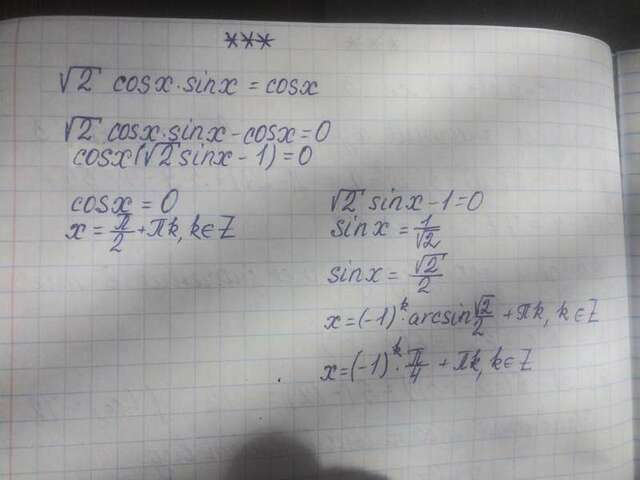 ***
√2 cosx·sinx = cosx
√2 cosx·sinx - cosx = 0
cosx(√2 sinx - 1) = 0
cosx = 0
x = π/2 + πk, k∈Z
√2 sinx - 1 = 0
sinx = 1/√2
sinx = √2/2
x = (-1)^k · arcsin √2/2 + πk, k∈Z
x = (-1)^k · π/4 + πk, k∈Z